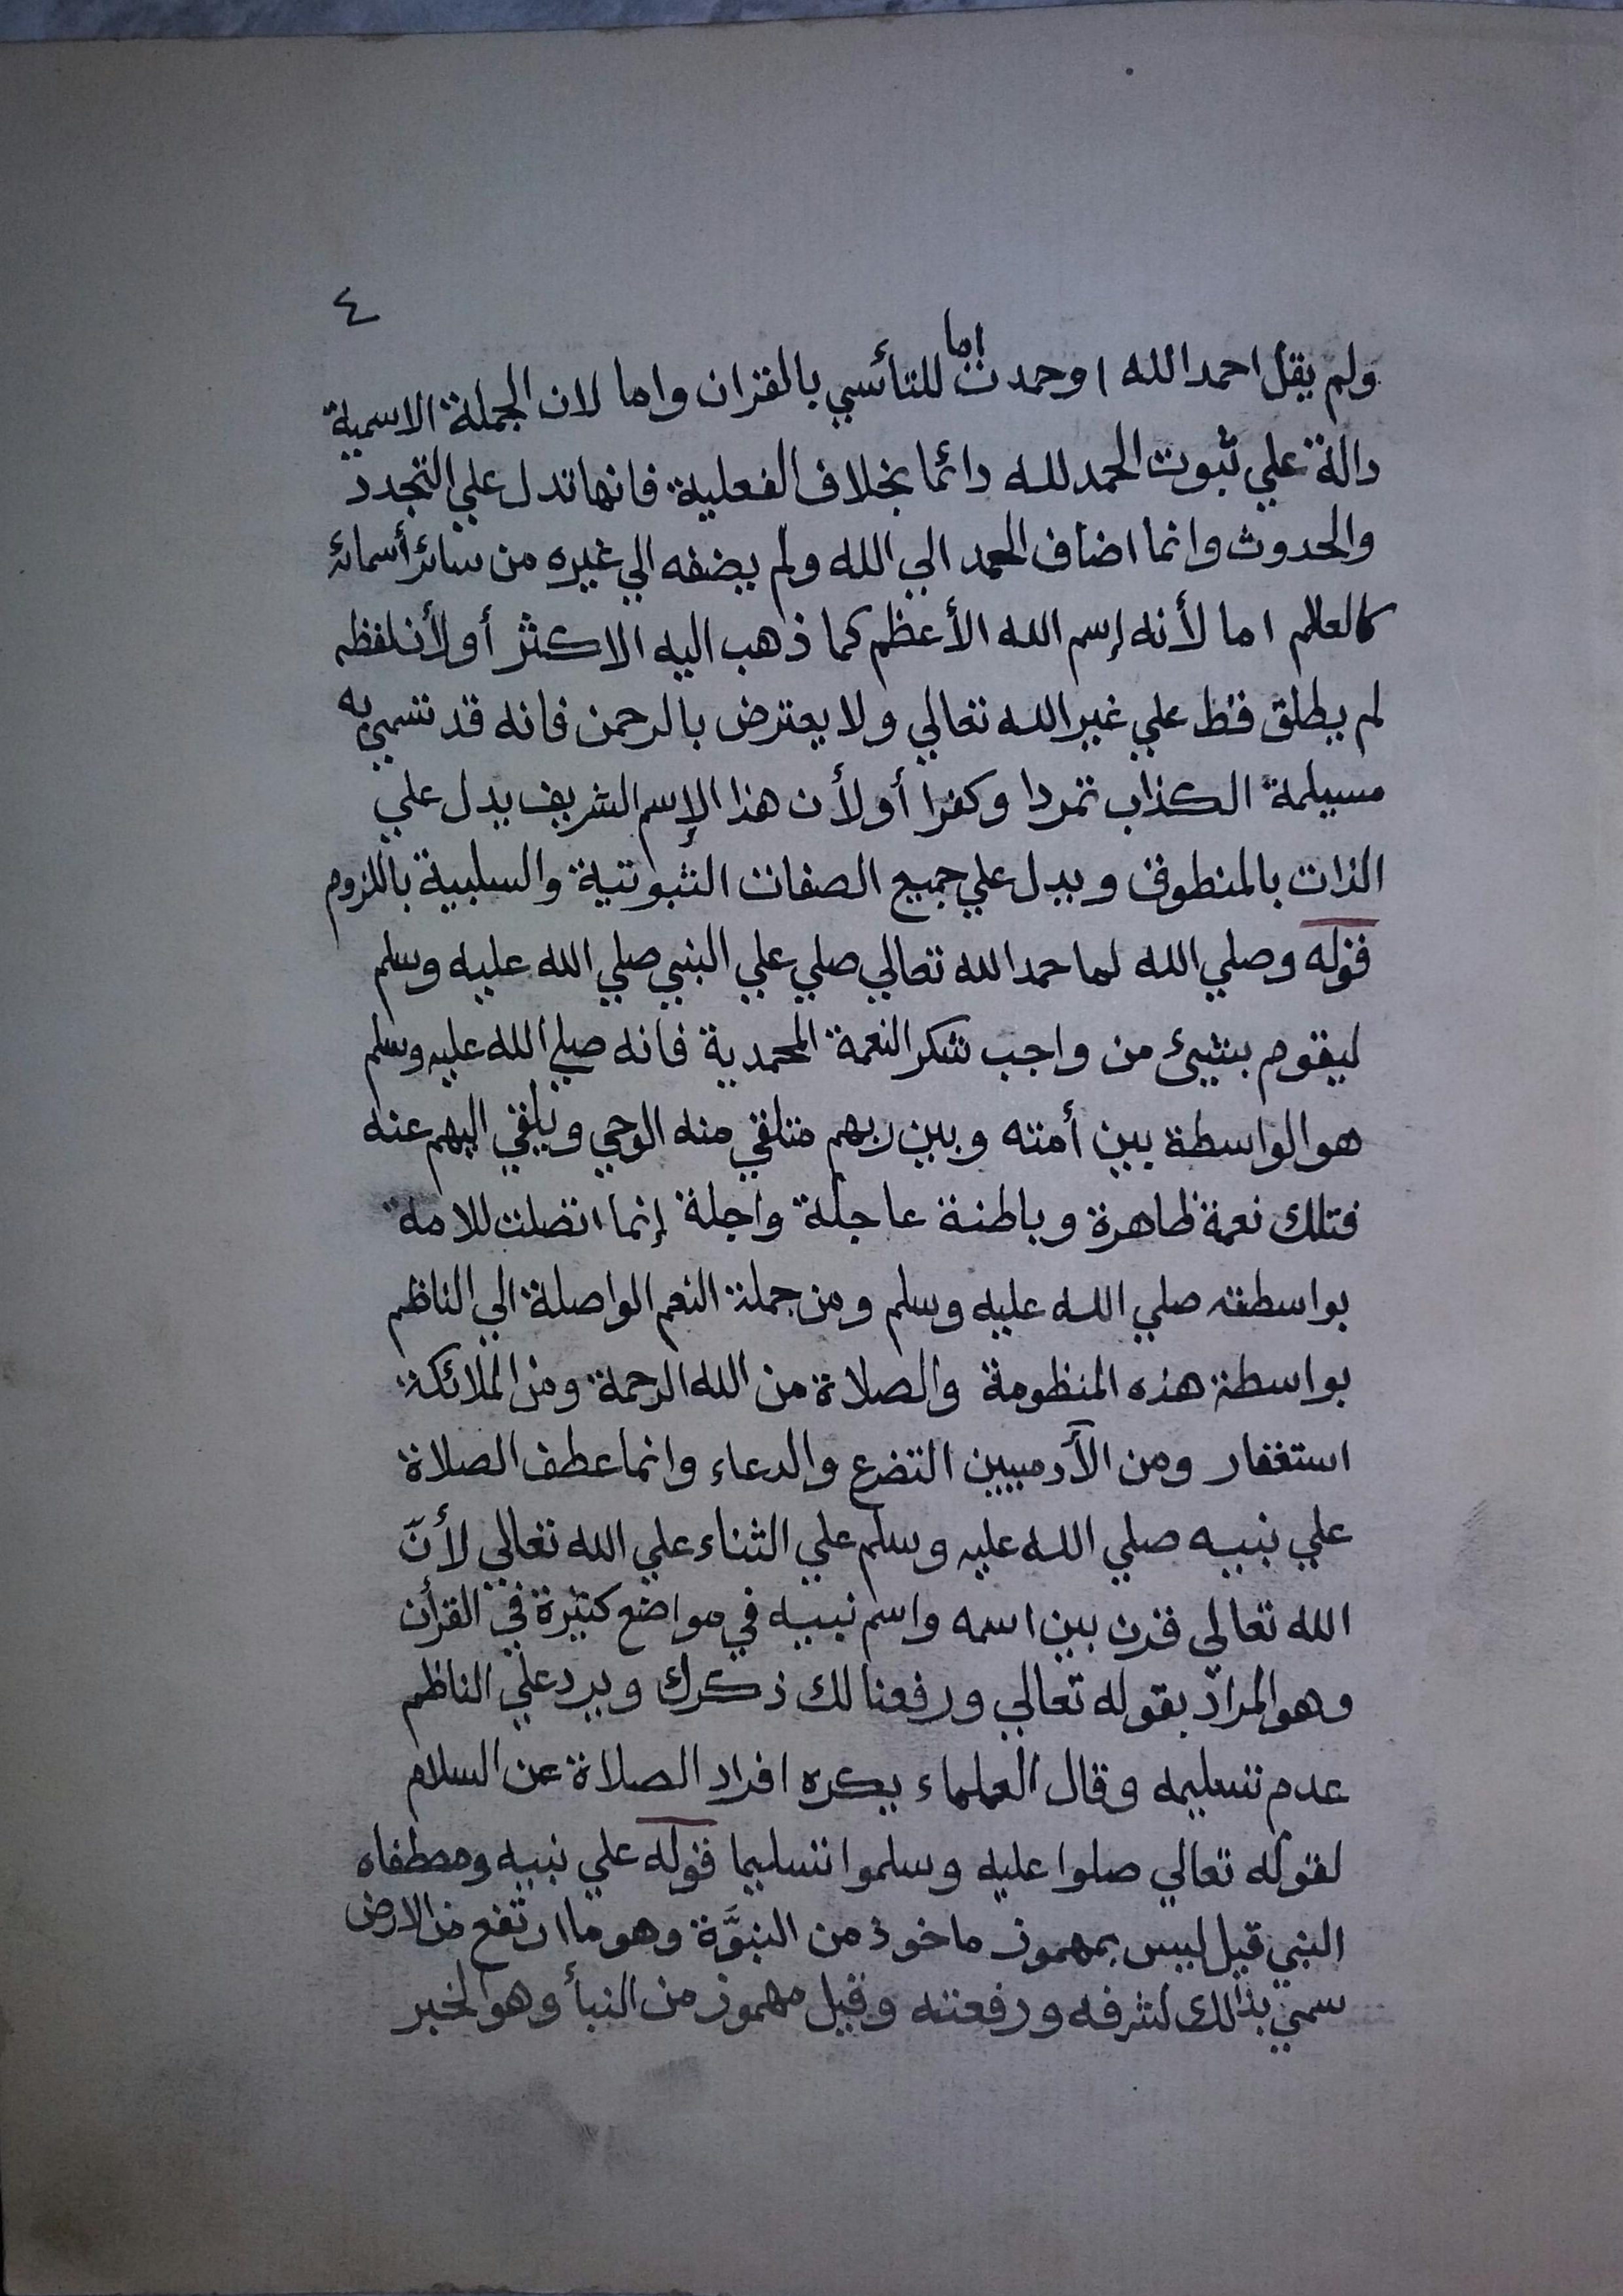 ٤
ولم يقل احمد الله اوحمدت اما للتأسي بالقران واما لان الجملة الاسمية
دالة علي ثبوت الحمد لله دائما بخلاف الفعلية فانها تدل علي التجدد
والحدوث وانما اضاف الحمد الي الله ولم يضفه الي غيره من سائر أسمائه
كالعالم اما لأنه إسم الله الأعظم كما ذهب اليه الاكثر أو لأن لفظه
لم يطلق قط علي غير الله تعالي ولا يعترض بالرحمن فانه قد تسمي به
مسيلمة الكذاب تمردا وكفرا أو لأن هذا الإسم الشريف يدل علي
الذات بالمنطوق ويدل علي جميع الصفات الثبوتية والسلبية باللزوم
قوله وصلي الله لما حمد الله تعالي صلي علي النبي صلي الله عليه وسلم
ليقوم بشيئ من واجب شكر النعمة المحمدية فانه صلي الله عليه وسلم
هو الواسطة بين أمته وبين ربهم متلقي منه الوحي ويلقي اليهم عنه
فتلك نعمة ظاهرة وباطنة عاجلة واجلة إنما اتصلت للامة
بواسطته صلي الله عليه وسلم ومن جملة النعم الواصلة الي الناظم
بواسطة هذه المنظومة والصلاة من الله الرحمة ومن الملائكة
استغفار ومن الآدميين التضرع والدعاء وانما عطف الصلاة
علي نبيه صلي الله عليه وسلم علي الثناء علي الله تعالي لأنّ
الله تعالي قرن بين اسمه واسم نبيه في مواضع كثيرة في القرأن
وهو المراد بقوله تعالي ورفعنا لك ذكرك ويرد علي الناظم
عدم تسليمه وقال العلماء يكره افراد الصلاة عن السلام
لقوله تعالي صلوا عليه وسلموا تسليما قوله علي نبيه ومصطفاه
النبي قيل ليس بمهموز ماخوذ من النبوَّة وهو ما ارتفع من الارض
سمي بذالك لشرفه ورفعته وقيل مهموز من النبأ وهو الخبر